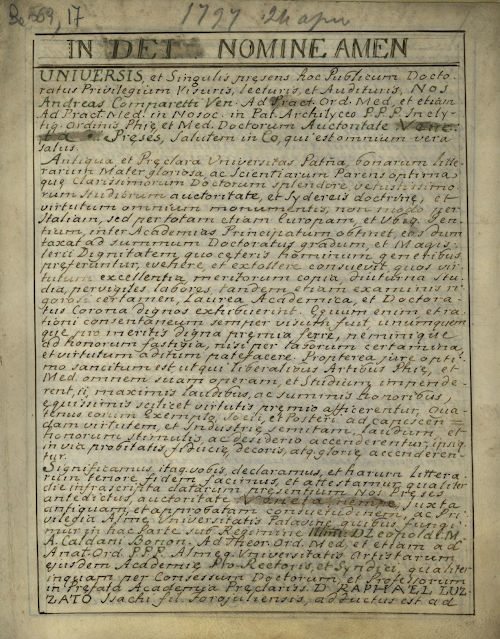 569, 17
1797 24 apr
IN DEI NOMINE AMEN
UNIVERSIS, et Singulis presens hoc Publicum Docto-
ratus Privilegium Visuris, Lecturis, et Audituris, Nos
Andreas Comparetti Ven. Ad Pract. Ord. Med, et etiam
Ad Pract. Med. in Nosoc. in Pat. Archilyceo P.P.P. Incly-
tiq. Ordinis Phię, et Med. Doctorum Auctoritate
Preses, Salutem in Eo, qui est omnium vera
salus.
Antiqua, et Pręclara Universitas Patna, bonarum Litte-
rarum Mater gloriosa, ac Scientiarum Parens optima
que Clarissimorum Doctorum splendore vetustissimo-
rum Studiorum auctoritate, et Sydereis doctrine, et
virtutum omnium monumentis, non modo per
Italiam, sed per totam etiam Europam, et Ubiq. Gen-
tium, inter Academias Principatum obtinet, eos dum
taxat ad summum Doctoratus gradum, et Magis-
terii Dignitatem, quo ceteris hominum generibus
preferuntur, evehere, et extollere consuevit, quos vir-
tutum excellentia, meritorum copia, diuturna stu-
dia, pervigiles labores, tandem etiam examinis ri-
goros certamen, Laurea Academica, et Doctora-
tus Corona dignos exhibuerint. Equum enim, et ra-
tioni consentaneum semper visum fuit, unumquem
que pro meritis digna premia ferre, neminique
ad honorum fastigia, nisi per laborum certamina
et virtutum aditum patefacere. Propterea jure opti-
mo sancitum est ut qui liberalibus Artibus Phię, et
Med. omnem suam operam, et Studium impende-
rent, ii, maximis laudibus, ac summis honoribus,
equissimis scilicet virtutis premio afficerentur, Qua-
tenus eorum exemplo, Socii, et Posteri ad capescen=
dam virtutem, et Industrię semitam, laudum, et
honorum stimulis, ac desiderio accenderentur, ipsiq.
in via probitatis, fiducię, decoris, atq. glorię accenderen-
tur.
Significamus, itaq. vobis, declaramus, et harum littera-
rum tenore, fidem facimus, et attestamur, qualiter
die infrascripta datarum presentium, Nos Preses
antedictus auctoritate juxta
antiquam, et approbatam consuetudinem, ac Pri-
vilegia Almę Universitatis Patavinę quibus fungi-
mur in hac parte sub Regimine Illmi D. Leopoldi M.
A. Caldani Bonon. Ad Theor. Ord. Med. et etiam ad
Anat. Ord. P.P.P. Almeq. Universitatis Artistarum
ejusdem Academię Pro Rectoris, et Syndici, qualiter
inquam per Consessum Doctorum, et Professorum
in Prefata Academia Pręclariss. D. RAPHAEL LUZ-
ZATO Isachi fil. Forojuliensis, adductus est ad